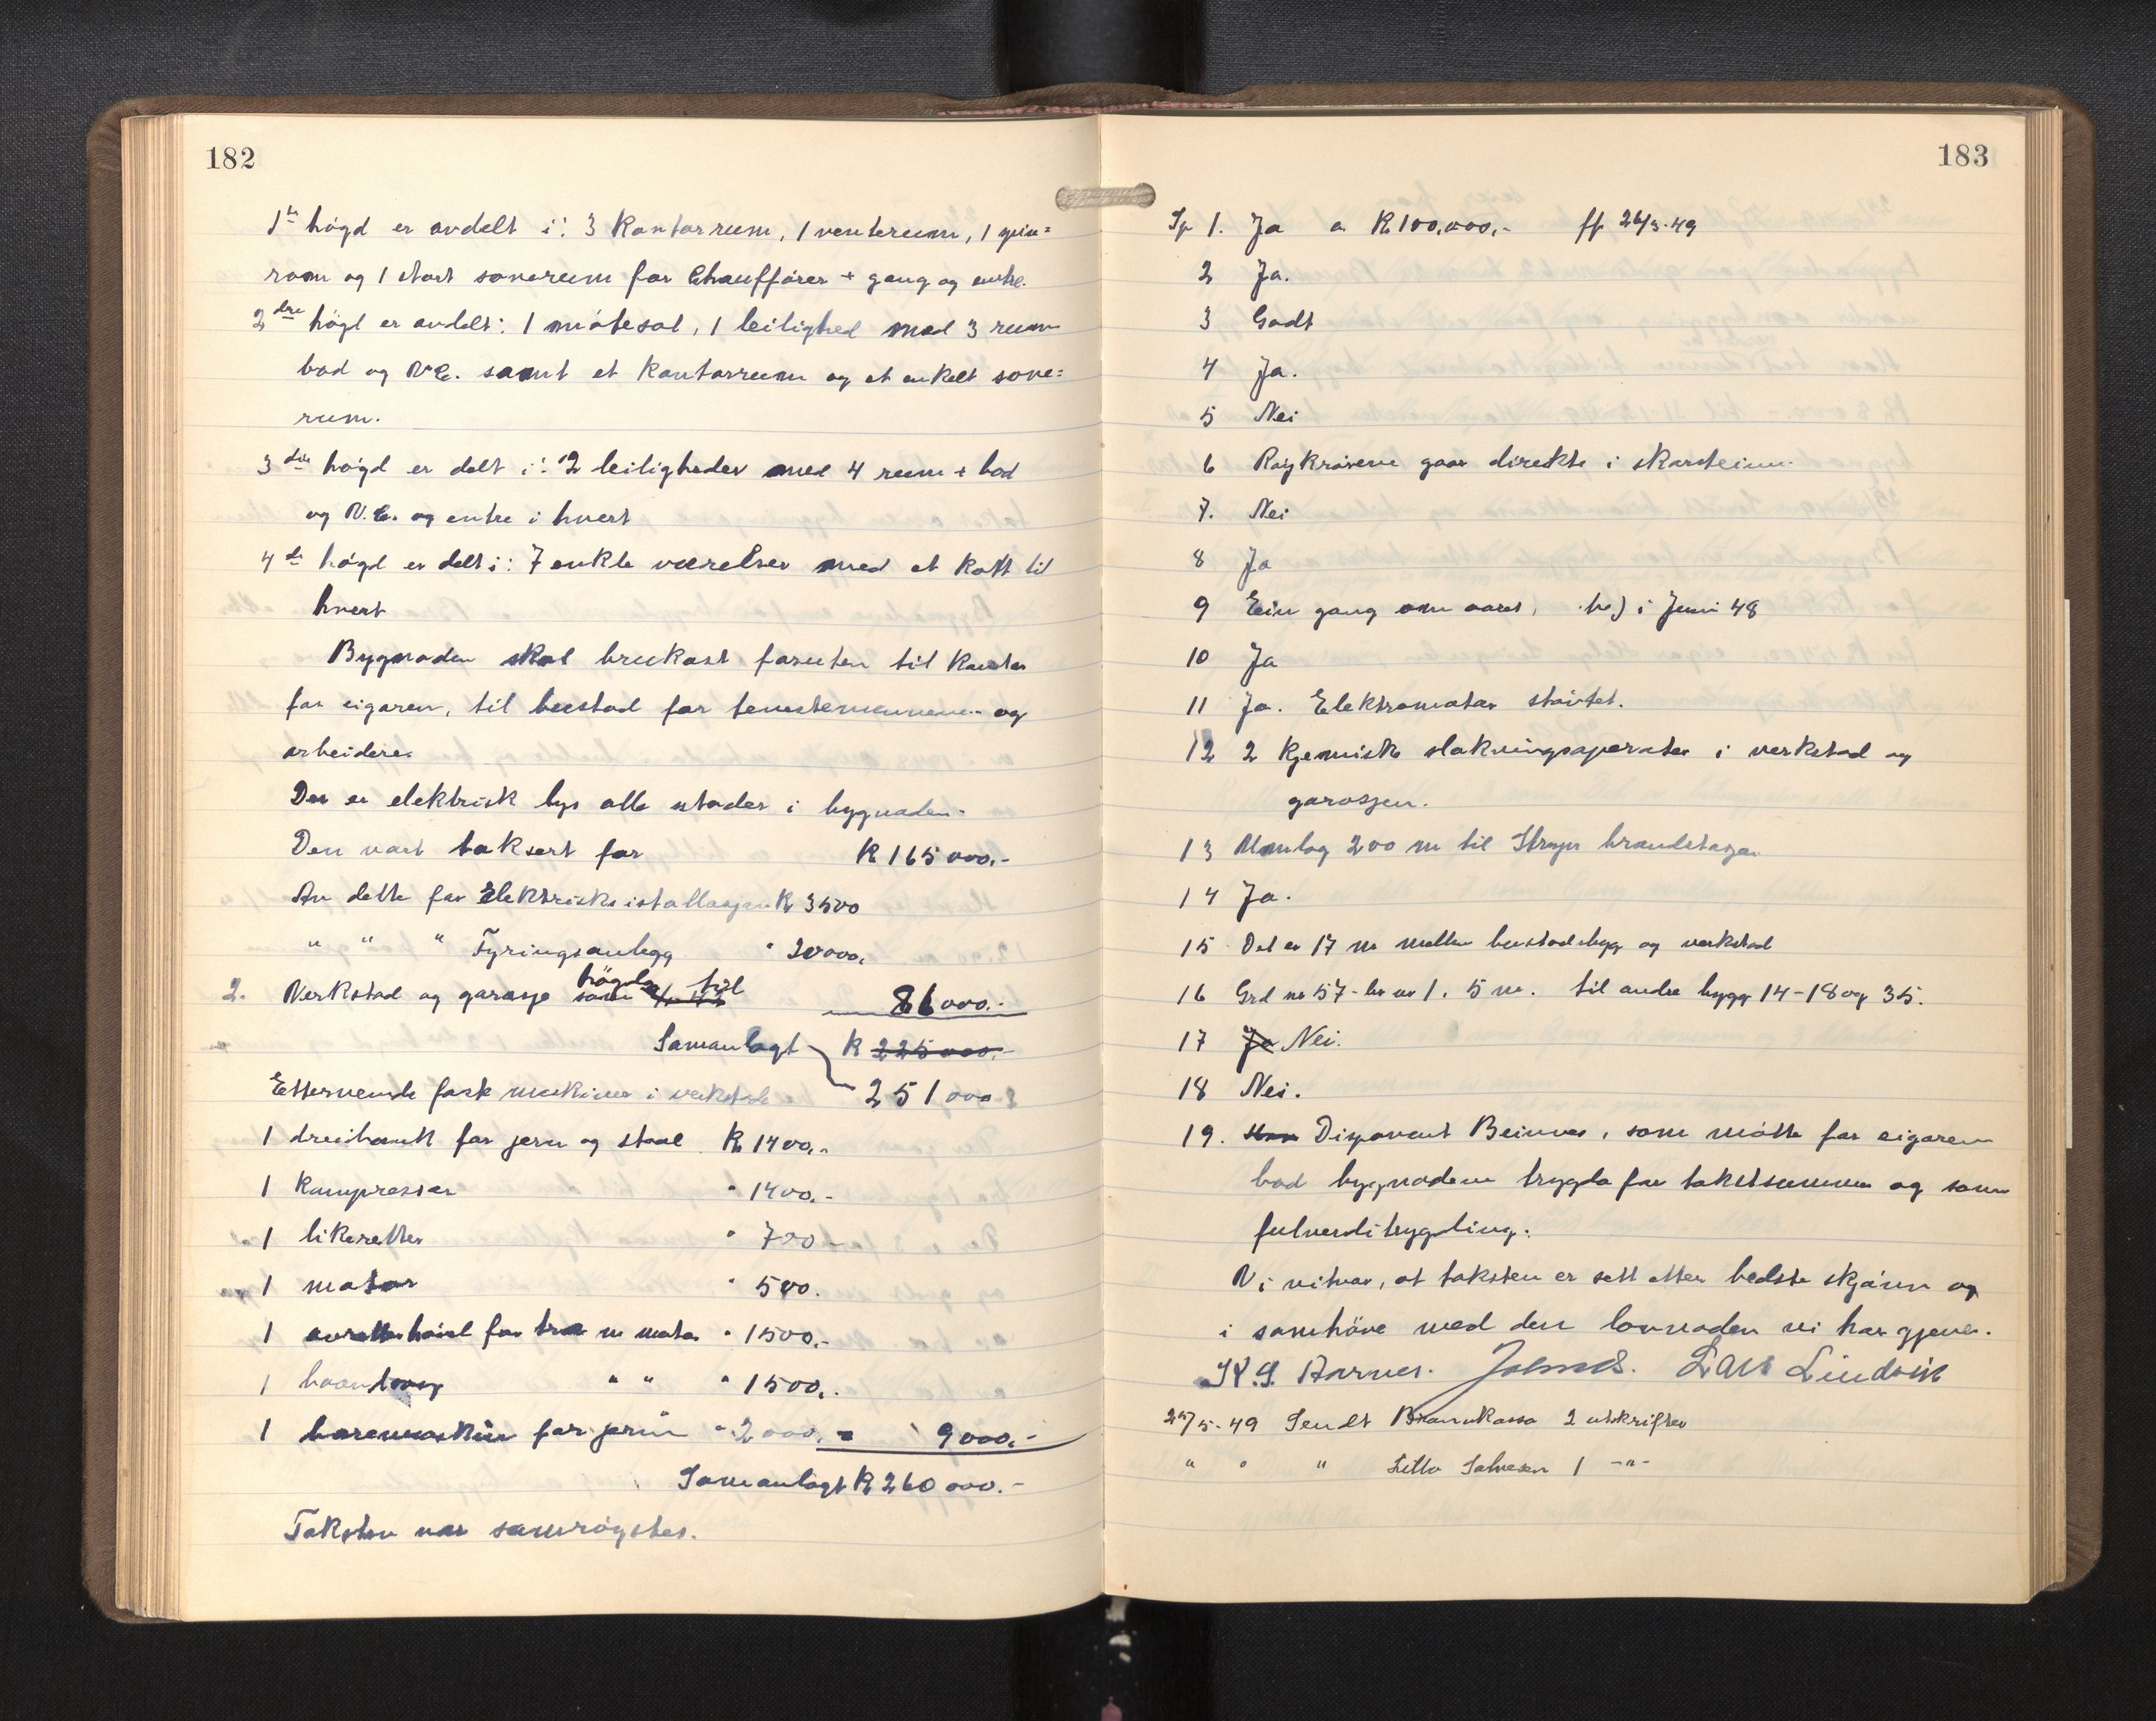 182
1ste högd er avdelt i: 3 Kontorrum, 1 venterum, 1 spise=
rom og 1 stort soverum for Chauffører + gang og entre.
2dre högd er avdelt: 1 mötesal, 1 leilighed med 3 rum
bad og W.C. samt et Kontorrum og et enkelt sove=
rum.
3die högd er delt i: 2 leiligheder med 4 rum + bad
og W.C. og entre i hvert
4de högd er delt i: 7 enkle værelser med et Kott til
hvert
Bygnaden skal brukast foruten til Kontor
for eigaren, til bustad for tenestemennene og
arbeidere.
Der er elektrisk lys alle stader i bygnaden.
Den vart taksert for K 165 000.-
Av dette for Elektriske istallasjon K 3500
" " " Fyringsanlegg " 20000.
2. Verkstad og garasje som högda til 86 000.-
Samanlagt K 225 000.-
251 000
Etternemde faste maskiner i verkstade
1 dreibenk for jern og staal K 1400.-
1 Kompressor " 1400.-
1 likeretter " 700-
1 motor " 500.
1 avretterhövel for tre m motor " 1500.-
1 baandsag " " " 1500.-
1 boremaskin for jern " 2000.- 9000.-
Samanlagt K 260 000.-
Taksten var samröystes.
183
Sp 1. Ja a K 100,000.- ff 26/3-49
2 Ja.
3 Godt
4 Ja.
5 Nei
6 Röykrörene gaar direkte i skorsteinen.
7. Nei
8 Ja
9 Ein gang om aaret, i Juni 48
10 Ja
11 Ja. Elektromotor stövtet.
12 2 Kjemiske slökningsaperater i verkstad og
garasjen.
13 Umlag 200 m til Stryn brandstasjon
14 Ja.
15 Det er 17 m mellom bustadsbyg og verkstad
16 Grd nr 57 - br nr 1. 5 m. til andre bygg 14-18 og 35.
17 Ja Nei.
18 Nei.
19. Disponent Beinnes, som mötte for eigaren
bad bygnadene trygda for takstsummen og som
fulverditrygding.
Vi vitnar, at taksten er sett etter bedste skjönn og
i samhöve med den lovnaden vi har gjeve.
K. S. Aarnes. Lars Lindvik
25/5-49 Sendt Brannkassa 2 utskrifter
" " " Salvesen 1 -"-